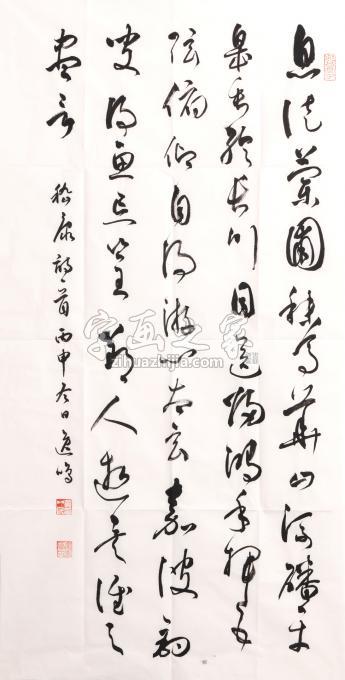 息徒蘭圃秣馬華山流磻平
皋垂綸長川目送歸鴻手揮五
弦俯仰自得游心太玄嘉彼釣
叟得魚忘筌郢人逝矣誰与
盡言
嵇康詩一首丙申冬日逸鳴
字画之家
zihuazhijia.com